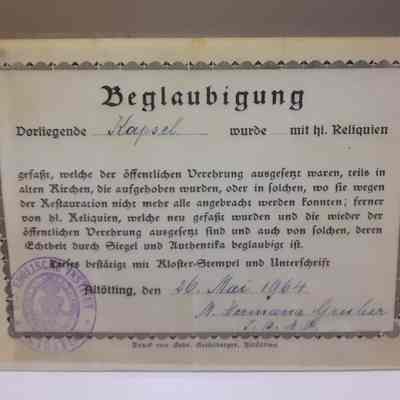 Beglaubigung
Vorliegende Kapsel wurde mit hl. Reliquien
gefaßt, welche der öffentlichen Verehrung ausgesetzt waren, teils in
alten Kirchen, die aufgehoben wurden, oder in solchen, wo sie wegen
der Restauration nicht mehr alle angebracht werden konnten; ferner
von hl. Reliquien, welche neu gefaßt wurden und die wieder der
öffentlichen Verehrung ausgesetzt sind und auch von solchen, deren
Echtheit durch Siegel und Authentika beglaubigt ist.
Dieses bestätigt mit Kloster-Stempel und Unterschrift
Altötting, den 26. Mai 1964
M. Hermana Gruber
Druck von Gebr. Geiselberger, Altötting